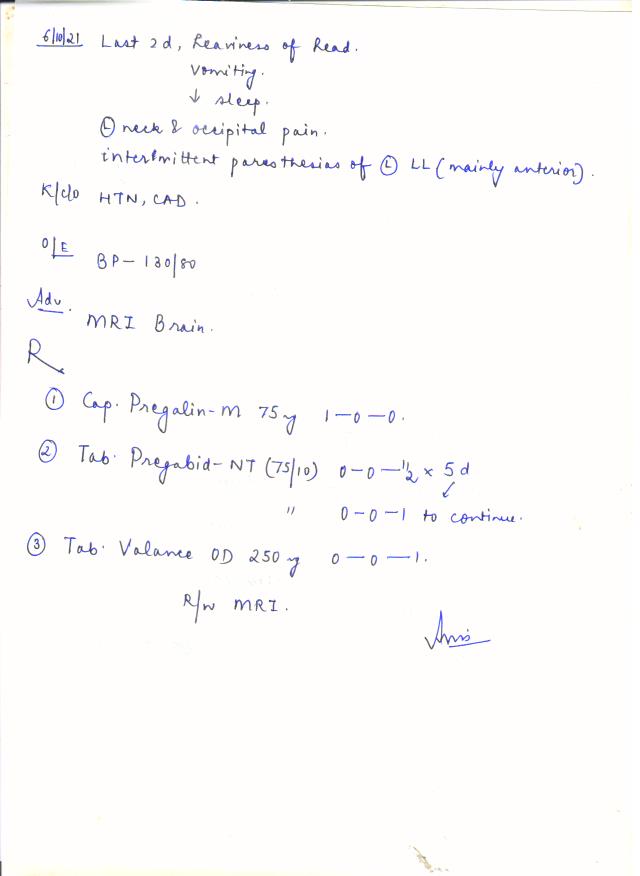 6/10/21 Last 2d, heaviness of head.
vomiting.
↓ sleep.
Ⓛ neck & occipital pain.
intermittent paresthesias of Ⓛ LL (mainly anterior).
K/c/o HTN, CAD.
O/E
BP- 130/80
Adv.
MRI Brain.
R
① Cap. Pregalin-M 75 mg 1-0-0.
② Tab. Pregabid-NT (75/10) 0-0-1/2 x 5d
" 0-0-1 to continue.
③ Tab. Valance OD 250 mg 0-0-1.
R/w MRI.